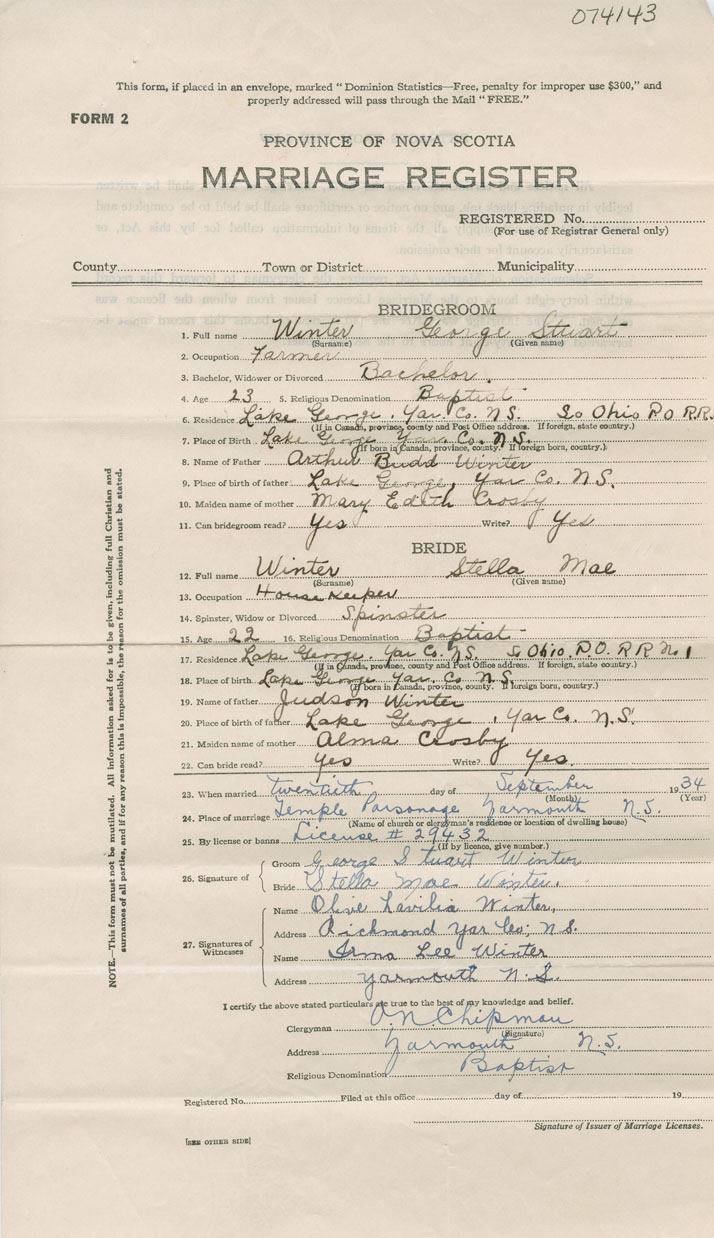 074143
This form, if placed in an envelope, marked "Dominion Statistics—Free, penalty for improper use $300," and
properly addressed will pass through the Mail "FREE."
FORM 2
PROVINCE OF NOVA SCOTIA
MARRIAGE REGISTER
REGISTERED No.
(For use of Registrar General only)
County Town or District Municipality
BRIDEGROOM
1. Full name Winter George Stuart
(Surname) (Given name)
2. Occupation Farmer
3. Bachelor, Widower or Divorced Bachelor.
4. Age 23 5. Religious Denomination Baptist
6. Residence Lake George, Yar. Co. N.S. So Ohio P.O R.R.
(If in Canada, province, county and Post Office address. If foreign, state country.)
7. Place of Birth Lake George Yar. Co. N.S.
(If born in Canada, province, county. If foreign born, country.)
8. Name of Father Arthur Budd Winter
9. Place of birth of father Lake George, Yar Co. N.S.
10. Maiden name of mother Mary Edith Crosby
11. Can bridegroom read? Yes Write? Yes
BRIDE
12. Full name Winter Stella Mae
(Surname) (Given name)
13. Occupation House Keeper
14. Spinster, Widow or Divorced Spinster
15. Age 22 16. Religious Denomination Baptist
17. Residence Lake George. Yar Co. N.S. So Ohio. P.O. R R No 1
(If in Canada, province, county and Post Office address. If foreign, state country.)
18. Place of birth Lake George Yar. Co. N.S.
(If born in Canada, province, county. If foreign born, country.)
19. Name of father Judson Winter
20. Place of birth of father Lake George, Yar Co. N.S.
21. Maiden name of mother Alma Crosby
22. Can bride read? Yes Write? Yes.
23. When married twentieth day of September 1934
(Month) (Year)
24. Place of marriage Temple Parsonage Yarmouth N.S.
(Name of church or clergyman's residence or location of dwelling house)
25. By license or banns License # 29432
(If by licence, give number.)
26. Signature of
Groom George Stuart Winter
Bride Stella Mae Winter.
27. Signatures of Witnesses
Name Olive Lavilia Winter,
Address Richmond Yar Co; N.S.
Name Irma Lee Winter
Address Yarmouth N.S.
I certify the above stated particulars are true to the best of my knowledge and belief.
Clergyman O.N. Chipman
(Signature)
Address Yarmouth N.S.
Religious Denomination Baptist
Registered No. Filed at this office day of 19
Signature of Issuer of Marriage Licenses.
[SEE OTHER SIDE]
NOTE.—This form must not be mutilated. All information asked for is to be given, including full Christian and
surnames of all parties, and if for any reason this is impossible, the reason for the omission must be stated.